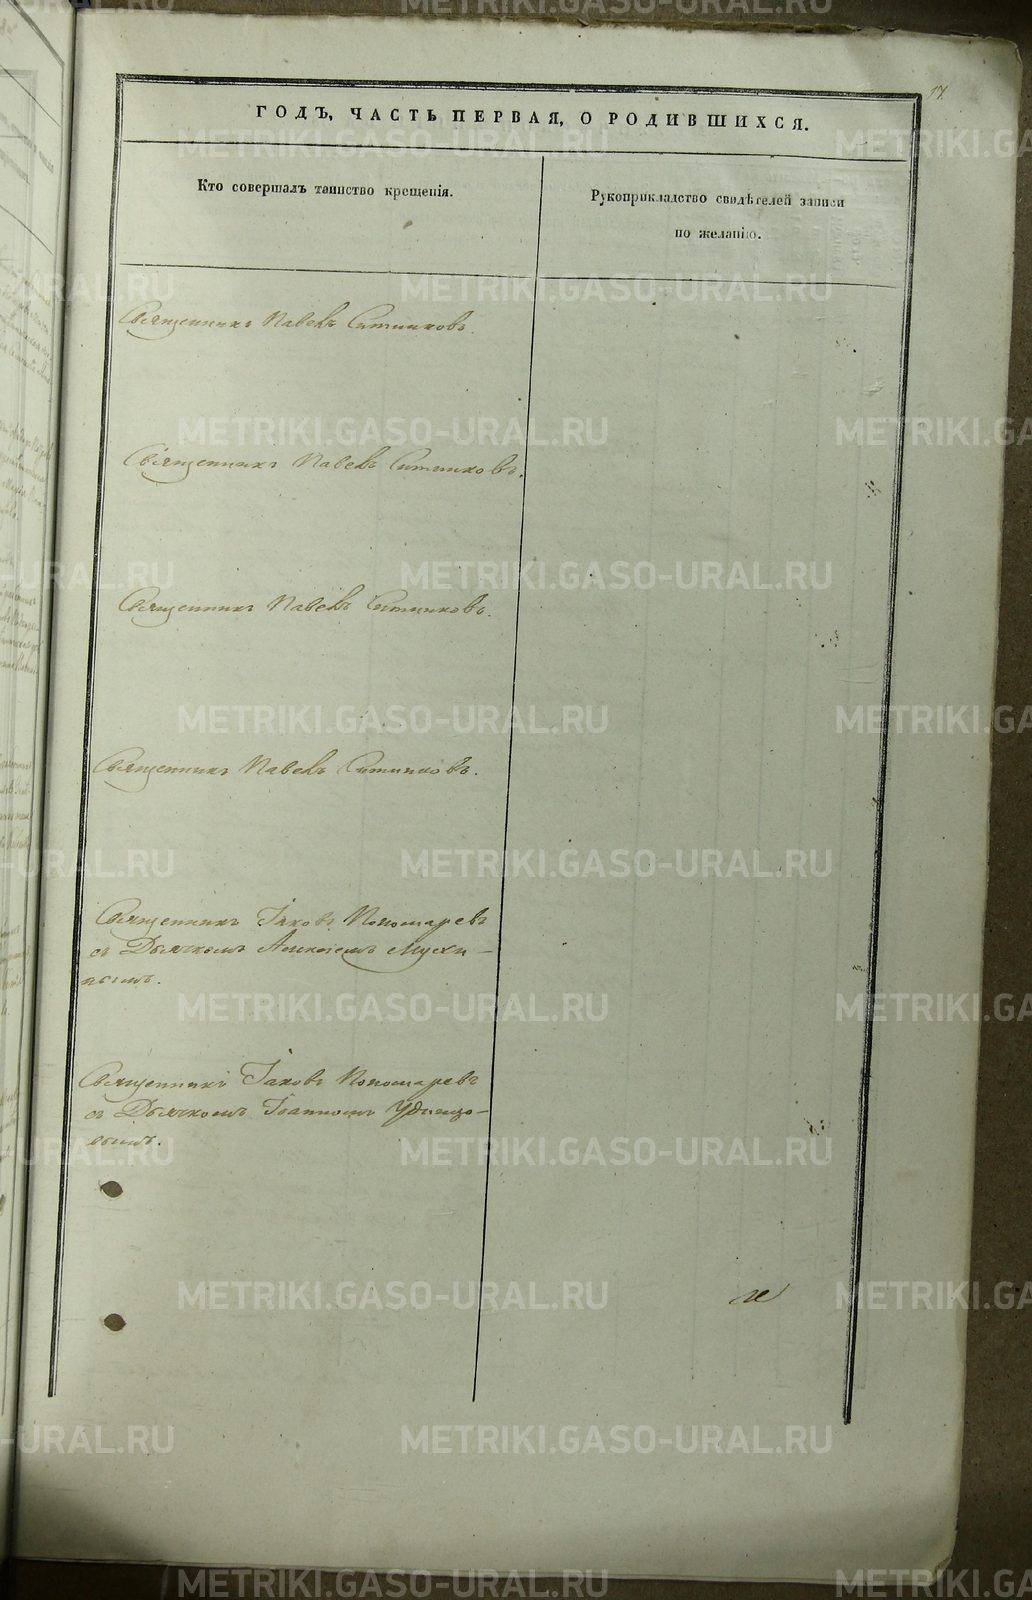 17.
ГОДЪ, ЧАСТЬ ПЕРВАЯ, О РОДИВШИХСЯ.
Кто совершалъ таинство крещенія.
Рукоприкладство свидѣтелей записи
по желанію.
Священникъ Павелъ Ситниковъ.
Священникъ Павелъ Ситниковъ.
Священникъ Павелъ Ситниковъ.
Священникъ Павелъ Ситниковъ.
Священникъ Іаковъ Пономаревъ
съ Дьячкомъ Алексѣемъ Мухи-
нымъ.
Священникъ Іаковъ Пономаревъ
съ Дьячкомъ Іоанномъ Удинцо-
вымъ.
METRIKI.GASO-URAL.RU